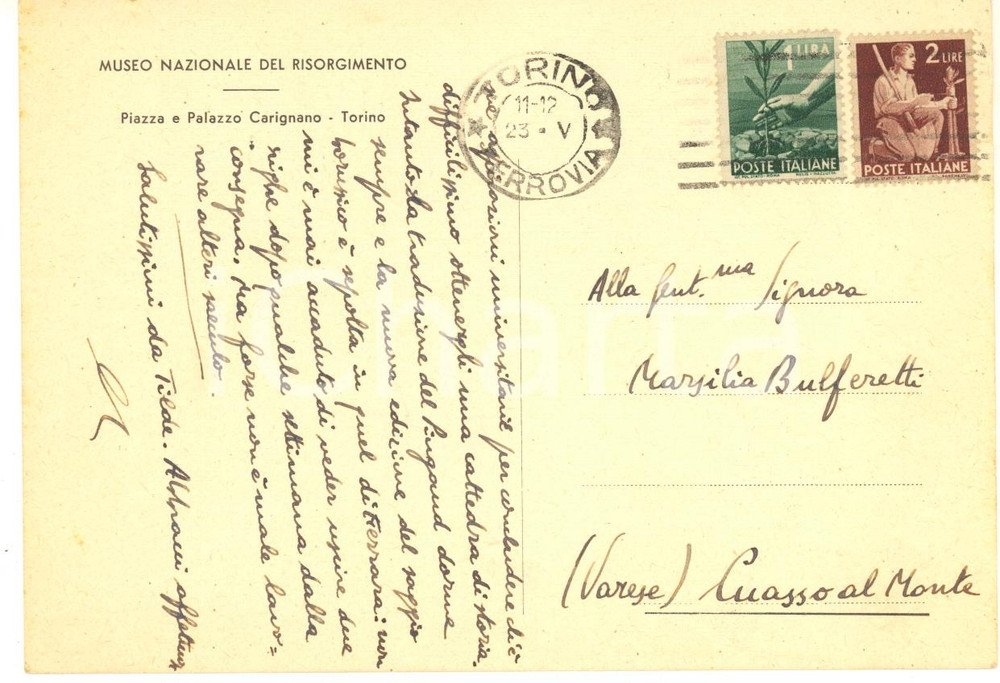 MUSEO NAZIONALE DEL RISORGIMENTO
Piazza e Palazzo Carignano - Torino
TORINO
11-12
23 - V
FERROVIA
1 LIRA
POSTE ITALIANE
2 LIRE
POSTE ITALIANE
universitarie per concludere ch'è
difficilissimo ottenergli una cattedra di storia.
Intanto la traduzione del Pingaud dorme
sempre e la nuova edizione del saggio
è sepolta in quel di Ferrara: non
mi è mai accaduto di veder uscire due
righe dopo qualche settimana dalla
consegna. Ma forse non è male lavo=
rare alteri saeculo.
Salutissimi da Tilde. Abbracci affettuosi
Alla Gent.ma Signora
Marsilia Bulferetti
(Varese) Cuasso al Monte
charta